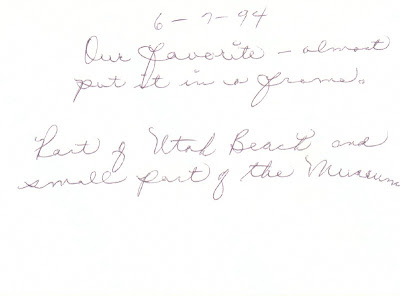 6-7-94
Our favorite - almost
put it in a frame.
Part of Utah Beach and
small part of the Museum